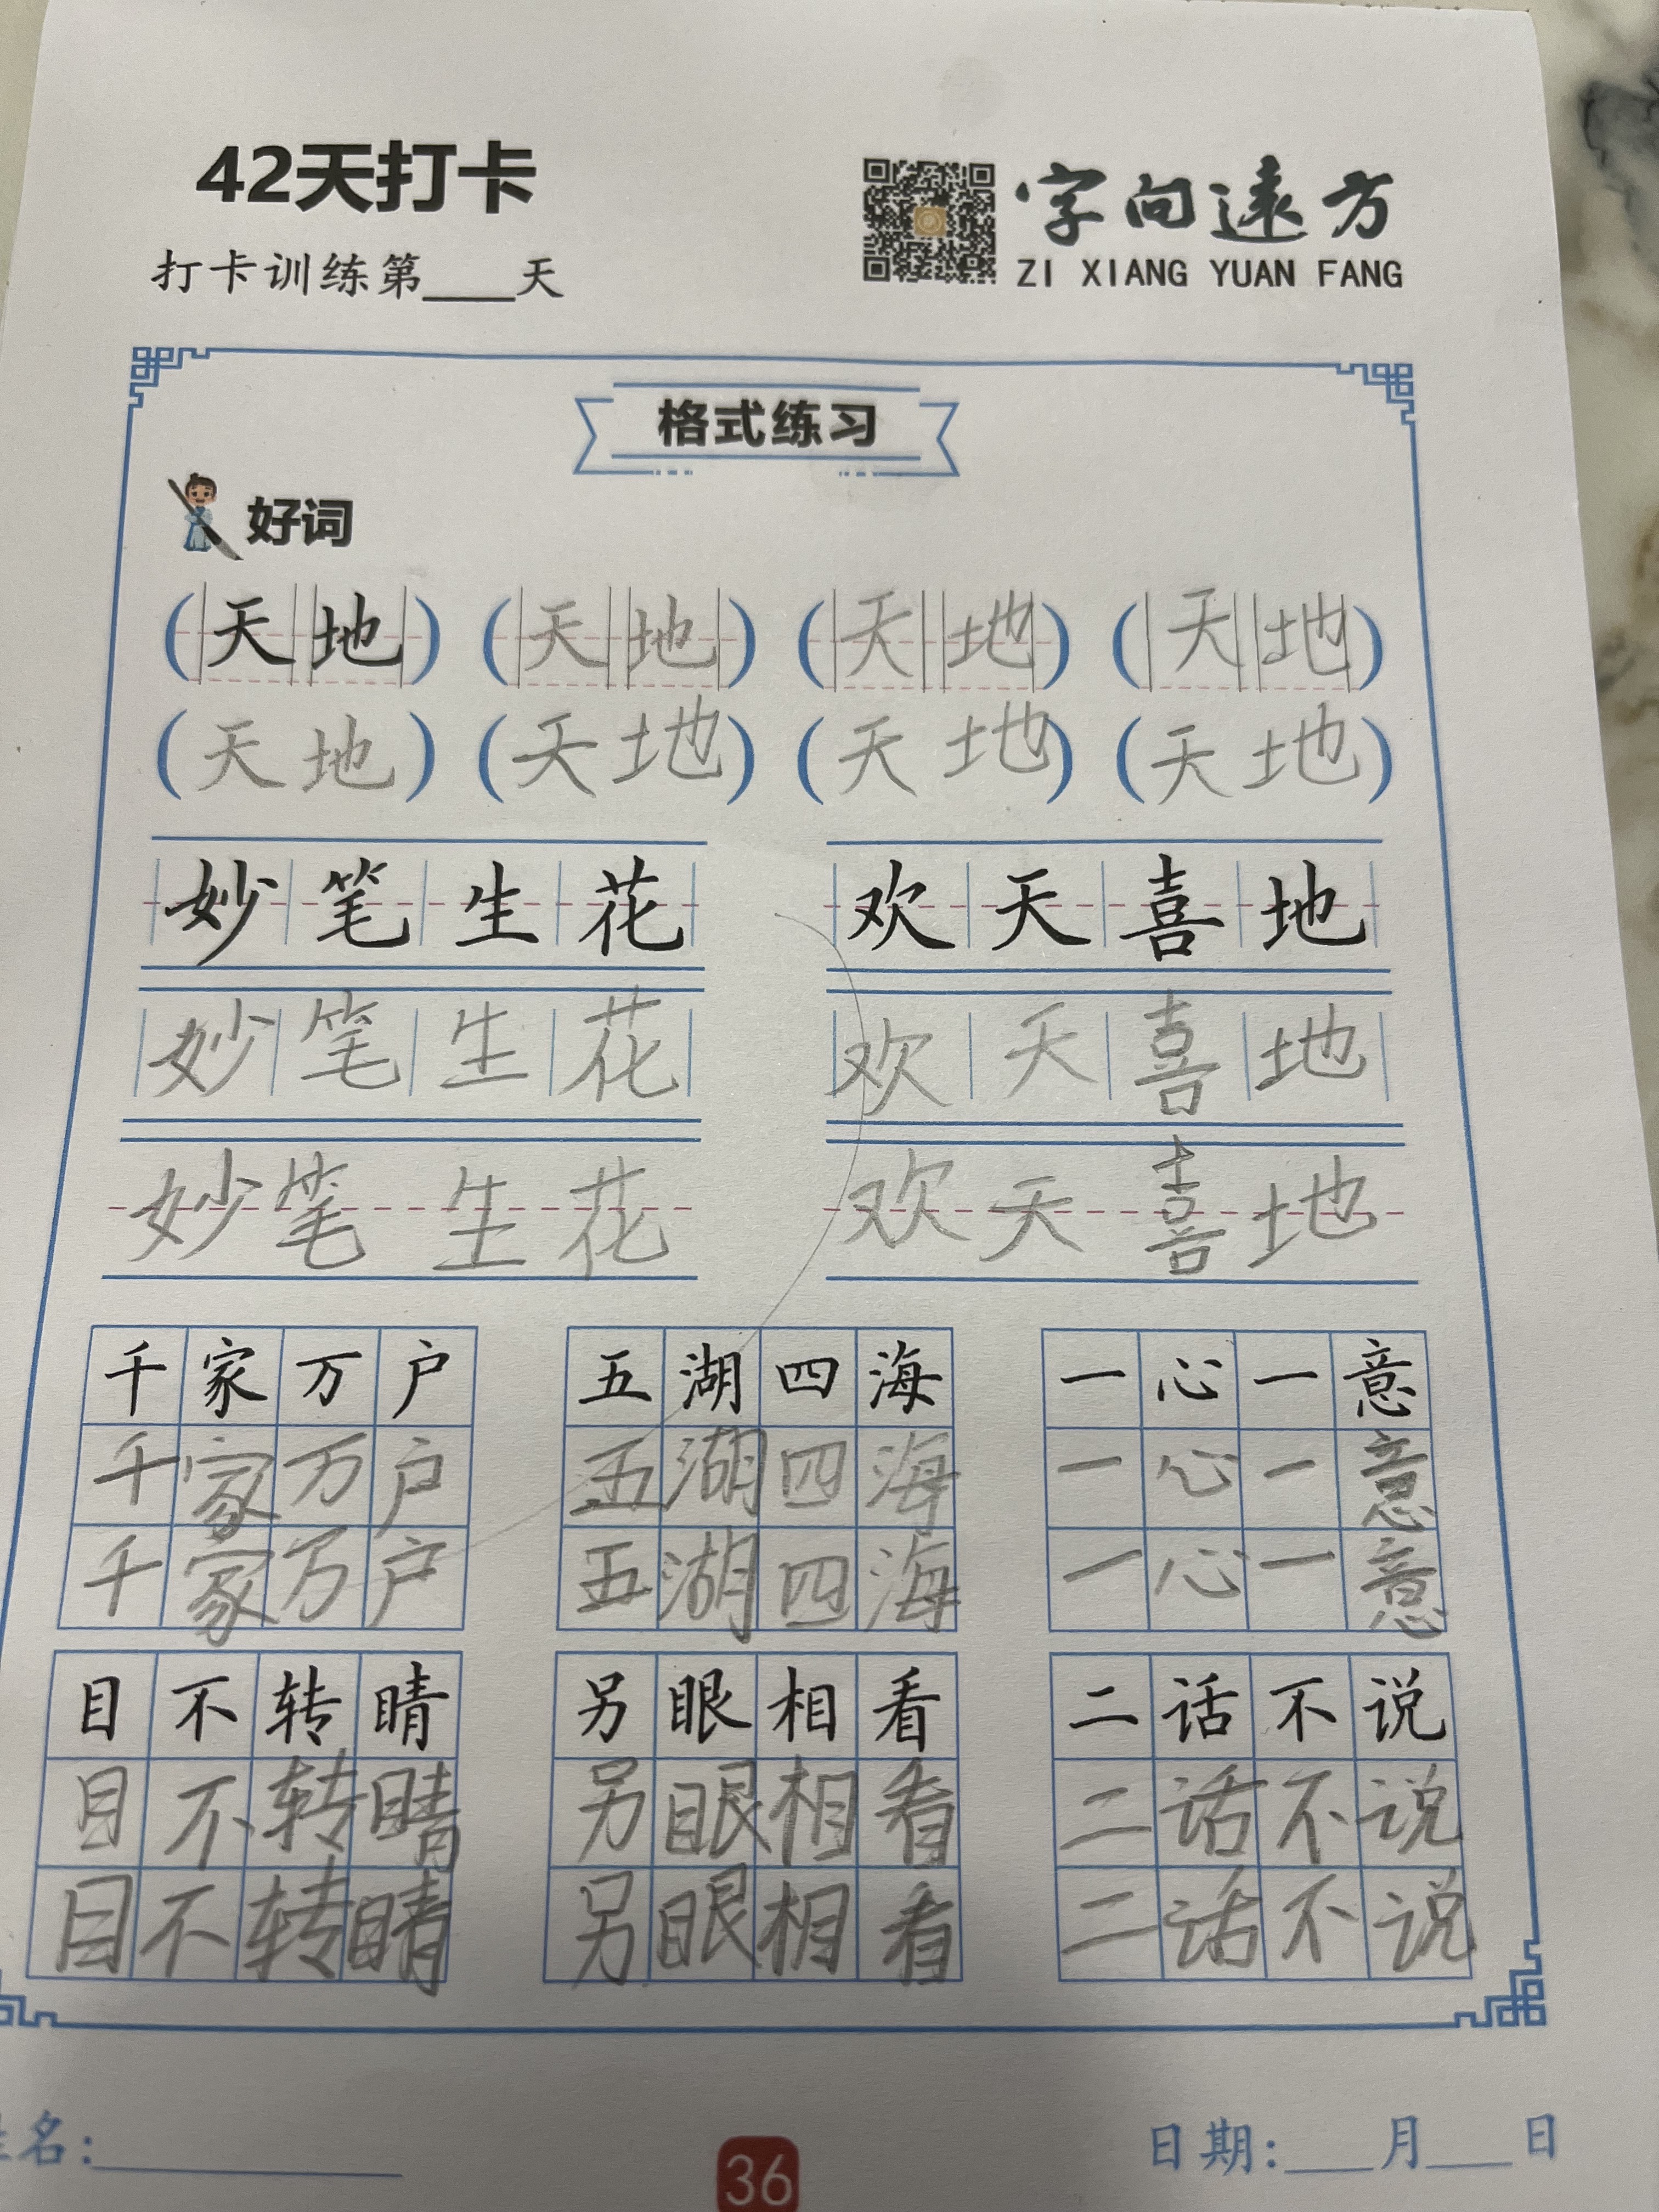 42天打卡
字向遠方
打卡训练第____天
ZI XIANG YUAN FANG
格式练习
好词
(天地) (天地) (天地) (天地)
(天地) (天地) (天地) (天地)
妙笔生花 欢天喜地
妙笔生花 欢天喜地
妙笔生花 欢天喜地
千家万户 五湖四海 一心一意
千家万户 五湖四海 一心一意
千家万户 五湖四海 一心一意
目不转睛 另眼相看 二话不说
目不转睛 另眼相看 二话不说
目不转睛 另眼相看 二话不说
姓名:____ 日期:___月___日
36